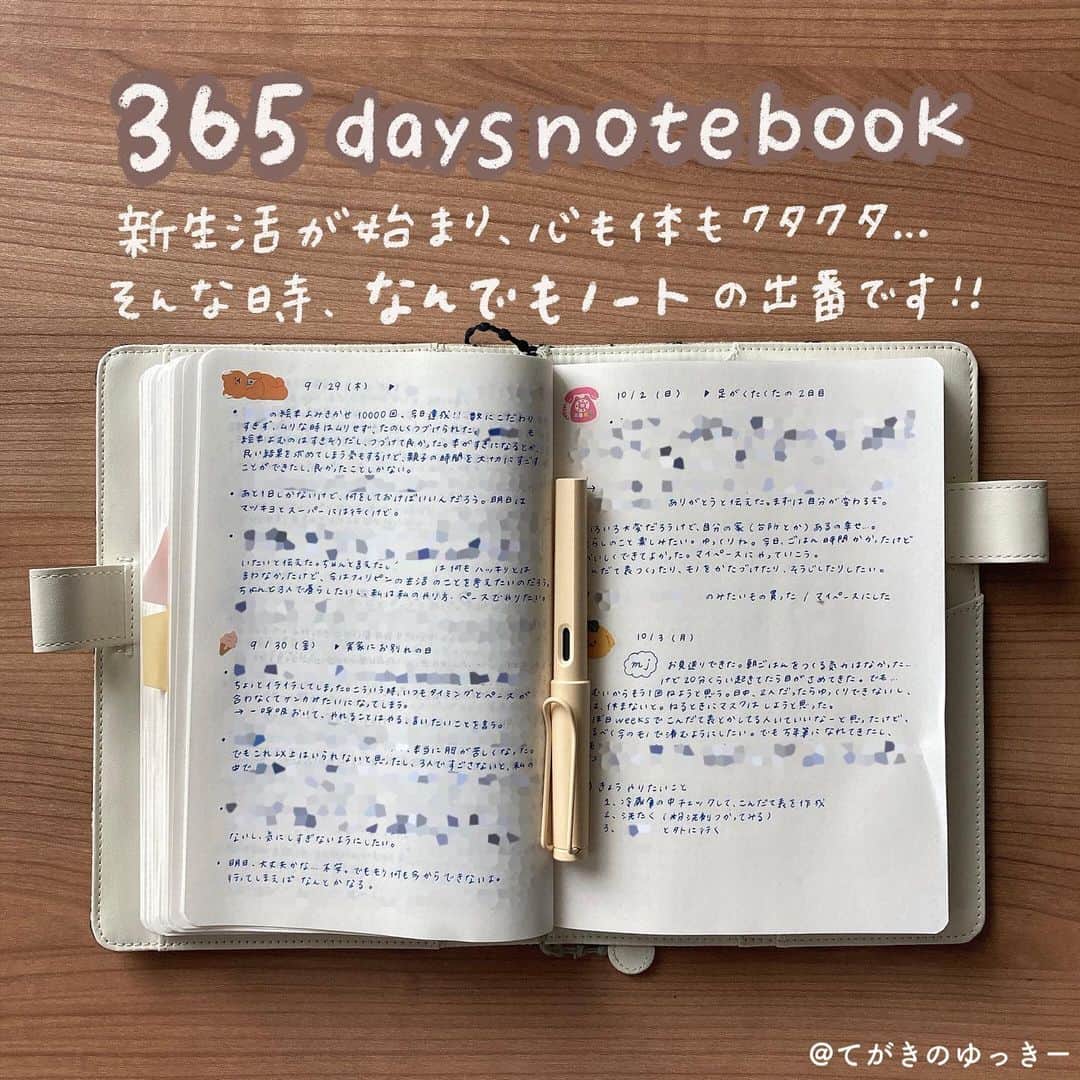 365 days notebook
新生活が始まり、心も体もクタクタ...
そんな時、なんでもノートの出番です!!
9/29(木) ▶
の絵本よみきかせ10000回、今日達成!! 数にこだわり
すぎず、ムリな時はムリせず、たのしくつづけられた。 も
絵本よむのはすきそうだし、つづけて良かった。本がすきになるとか、
良い結果を求めてしまう気もするけど、親子の時間を大切にすごす
ことができたし、良かったことしかない。
・あと1日しかないけど、何をしておけばいいんだろう。明日は
マツキヨとスーパーには行くけど。
いたいと伝えた。ちゃんと言えたし は何もハッキリとは
まわなかったけど、今はフィリピンの生活のことを考えたいのだろう。
ちゃんと3人で暮らしたいし、私は私のやり方、ペースでやりたい。
9/30(金) ▶実家にお別れの日
ちょっとイライラしてしまった。こういう時、いつもタイミングとペースが
合わなくてケンカみたいになってしまう。
→一呼吸おいて、やれることはやる、言いたいことを言う。
...本当に胸が苦しくなった。
でもこれ以上はいられないと思ったし、3人ですごさないと、私の
中で
ないし、気にしすぎないようにしたい。
・明日、大丈夫かな...不安。でももう何も今からできないよ。
行ってしまえばなんとかなる。
10/2(日) ▶足がくたくたの2日目
→
ありがとうと伝えた。まずは自分が変わるぞ。
いろいろ大変だろうけど、自分の家(台所とか)あるの幸せ...。
らしのこと楽しみたい。ゆっくりね。今日、ごはん時間かかったけど
いしくできてよかった。マイペースにやっていこう。
んだて表つくったり、モノをかたづけたり、そうじしたりしたい。
のみたいもの買った / マイペースにした
10/3(月)
mj お見送りできた。朝ごはんをつくる気力はなかった...
けど20分くらい起きてたら目がさめてきた。でも...
むいからもう1回ねようと思う。日中、2人だったらゆっくりできないし、
は、休まないと。ねるときにマスクはしようと思った。
ぼ日weeksでこんだて表とかしてる人いていいなーと思ったけど、
るべく今のモノで済むようにしたい。でも万年筆になれてきたし、
きょうやりたいこと
1、冷蔵庫の中チェックして、こんだて表を作成
2、洗たく(粉洗剤つかってみる)
3、 と外に行く
@てがきのゆっきー